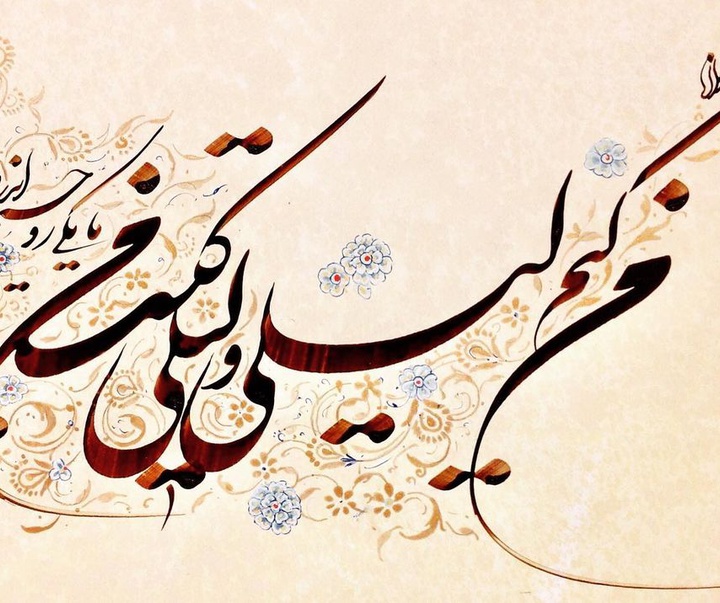 من کیم لیلی و لیلی کیست من
ما یکی روحیم اندر